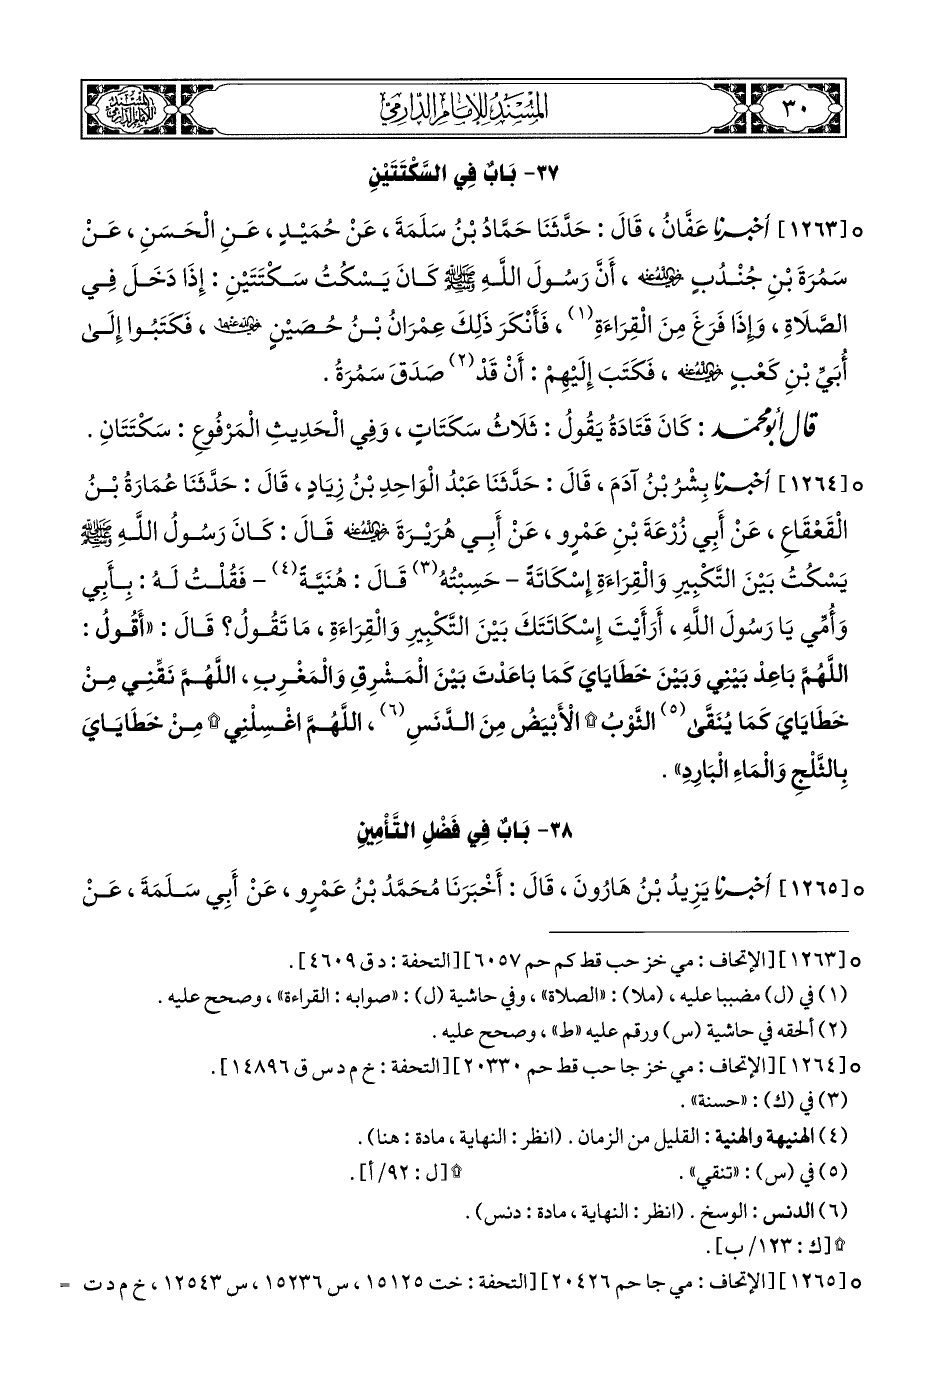 ٣٠
المسند للإمام الدارمي
٣٧- بَابٌ فِي السَّكْتَتَيْنِ
٥ [١٢٦٣] أخبرنا عَفَّانُ ، قَالَ : حَدَّثَنَا حَمَّادُ بْنُ سَلَمَةَ ، عَنْ حُمَيْدٍ ، عَنِ الْحَسَنِ ، عَنْ
سَمُرَةَ بْنِ جُنْدُبٍ رضي الله عنه ، أَنَّ رَسُولَ اللَّهِ ﷺ كَانَ يَسْكُتُ سَكْتَتَيْنِ : إِذَا دَخَلَ فِي
الصَّلَاةِ ، وَإِذَا فَرَغَ مِنَ الْقِرَاءَةِ(١) ، فَأَنْكَرَ ذَلِكَ عِمْرَانُ بْنُ حُصَيْنٍ رضي الله عنهما ، فَكَتَبُوا إِلَىٰ
أُبَيِّ بْنِ كَعْبٍ رضي الله عنه ، فَكَتَبَ إِلَيْهِمْ : أَنْ قَدْ(٢) صَدَقَ سَمُرَةُ .
قال أبو محمد : كَانَ قَتَادَةُ يَقُولُ : ثَلَاثُ سَكَتَاتٍ ، وَفِي الْحَدِيثِ الْمَرْفُوعِ : سَكْتَتَانِ .
٥ [١٢٦٤] أخبرنا بِشْرُ بْنُ آدَمَ ، قَالَ : حَدَّثَنَا عَبْدُ الْوَاحِدِ بْنُ زِيَادٍ ، قَالَ : حَدَّثَنَا عُمَارَةُ بْنُ
الْقَعْقَاعِ ، عَنْ أَبِي زُرْعَةَ بْنِ عَمْرٍو ، عَنْ أَبِي هُرَيْرَةَ رضي الله عنه قَالَ : كَانَ رَسُولُ اللَّهِ ﷺ
يَسْكُتُ بَيْنَ التَّكْبِيرِ وَالْقِرَاءَةِ إِسْكَاتَةً - حَسِبْتُهُ(٣) قَالَ : هُنَيَّةً(٤) - فَقُلْتُ لَهُ : بِأَبِي
وَأُمِّي يَا رَسُولَ اللَّهِ ، أَرَأَيْتَ إِسْكَاتَتَكَ بَيْنَ التَّكْبِيرِ وَالْقِرَاءَةِ ، مَا تَقُولُ؟ قَالَ : «أَقُولُ :
اللَّهُمَّ بَاعِدْ بَيْنِي وَبَيْنَ خَطَايَايَ كَمَا بَاعَدْتَ بَيْنَ الْمَشْرِقِ وَالْمَغْرِبِ ، اللَّهُمَّ نَقِّنِي مِنْ
خَطَايَايَ كَمَا يُنَقَّىٰ(٥) الثَّوْبُ ۩ الْأَبْيَضُ مِنَ الدَّنَسِ(٦) ، اللَّهُمَّ اغْسِلْنِي ۩ مِنْ خَطَايَايَ
بِالثَّلْجِ وَالْمَاءِ الْبَارِدِ» .
٣٨- بَابٌ فِي فَضْلِ التَّأْمِينِ
٥ [١٢٦٥] أخبرنا يَزِيدُ بْنُ هَارُونَ ، قَالَ : أَخْبَرَنَا مُحَمَّدُ بْنُ عَمْرٍو ، عَنْ أَبِي سَلَمَةَ ، عَنْ
٥ [١٢٦٣] [الإتحاف : مي خز حب قط كم حم ٦٠٥٧] [التحفة : د ق ٤٦٠٩] .
(١) في (ل) مضببا عليه ، (ملا) : «الصلاة» ، وفي حاشية (ل) : «صوابه : القراءة» ، وصحح عليه .
(٢) ألحقه في حاشية (س) ورقم عليه «ط» ، وصحح عليه .
٥ [١٢٦٤] [الإتحاف : مي خز جا حب قط حم ٢٠٣٣٠] [التحفة : خ م د س ق ١٤٨٩٦] .
(٣) في (ك) : «حسنة» .
(٤) الهنيهة والهنية : القليل من الزمان . (انظر : النهاية ، مادة : هنا) .
(٥) في (س) : «تنقي» . ۩ [ل : ٩٢/ أ] .
(٦) الدنس : الوسخ . (انظر : النهاية ، مادة : دنس) .
۩ [ك : ١٢٣/ ب] .
٥ [١٢٦٥] [الإتحاف : مي جا حم ٢٠٤٢٦] [التحفة : خت ١٥١٢٥ ، س ١٥٢٣٦ ، س ١٢٥٤٣ ، خ م د ت =